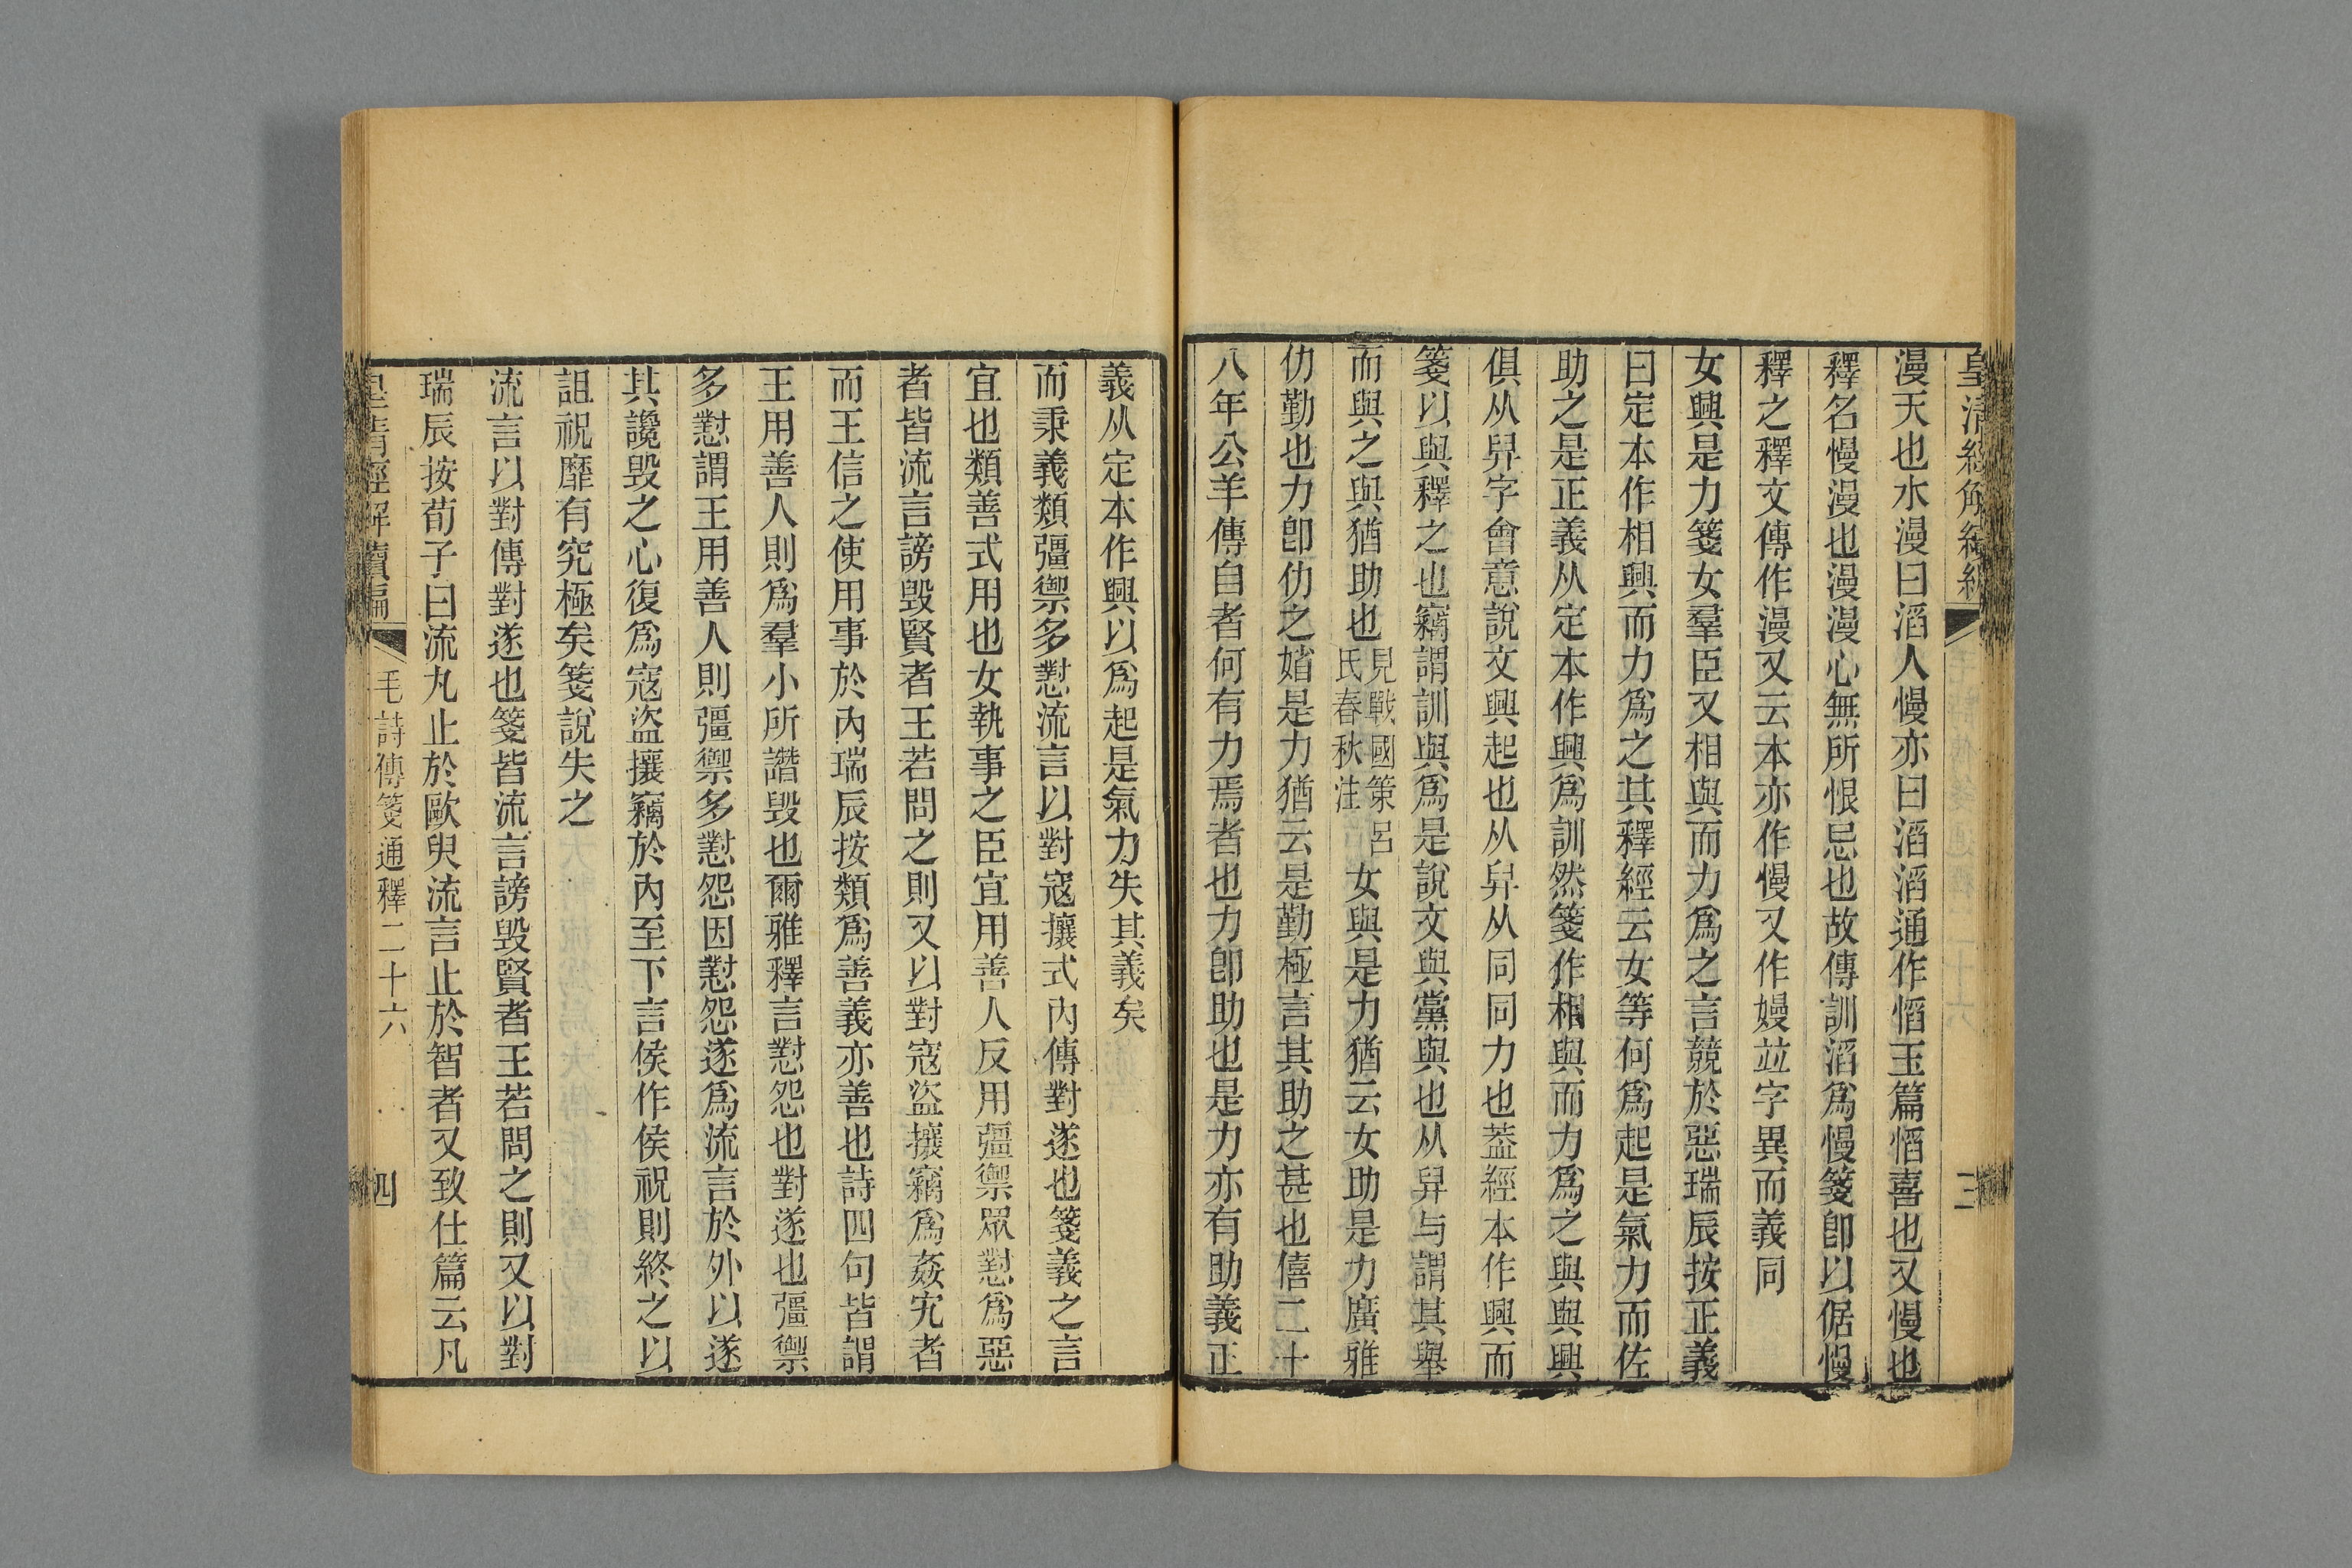 皇清經解續編
三
漫天也水漫曰滔人慢亦曰滔滔通作慆玉篇慆喜也又慢也
釋名慢漫也漫漫心無所恨忌也故傳訓滔爲慢箋卽以倨慢
釋之釋文傳作漫又云本亦作慢又作嫚竝字異而義同
女興是力箋女羣臣又相與而力爲之言競於惡瑞辰按正義
曰定本作相興而力爲之其釋經云女等何爲起是氣力而佐
助之是正義从定本作興爲訓然箋作相與而力爲之與與興
俱从舁字會意說文興起也从舁从同同力也葢經本作興而
箋以與釋之也竊謂訓與爲是說文與黨與也从舁与謂其舉
而與之與猶助也見戰國策呂氏春秋注女與是力猶云女助是力廣雅
仂勤也力卽仂之媘是力猶云是勤極言其助之甚也僖二十
八年公羊傳自者何有力焉者也力卽助也是力亦有助義正
義从定本作興以爲起是氣力失其義矣
而秉義類彊禦多懟流言以對寇攘式內傳對遂也箋義之言
宜也類善式用也女執事之臣宜用善人反用彊禦眾懟爲惡
者皆流言謗毀賢者王若問之則又以對寇盜攘竊爲姦宄者
而王信之使用事於內瑞辰按類爲善義亦善也詩四句皆謂
王用善人則爲羣小所譖毀也爾雅釋言懟怨也對遂也彊禦
多懟謂王用善人則彊禦多懟怨因懟怨遂爲流言於外以遂
其讒毀之心復爲寇盜攘竊於內至下言侯作侯祝則終之以
詛祝靡有究極矣箋說失之
流言以對傳對遂也箋皆流言謗毀賢者王若問之則又以對
瑞辰按荀子曰流丸止於歐臾流言止於智者又致仕篇云凡
皇清經解續編
毛詩傳箋通釋二十六
四